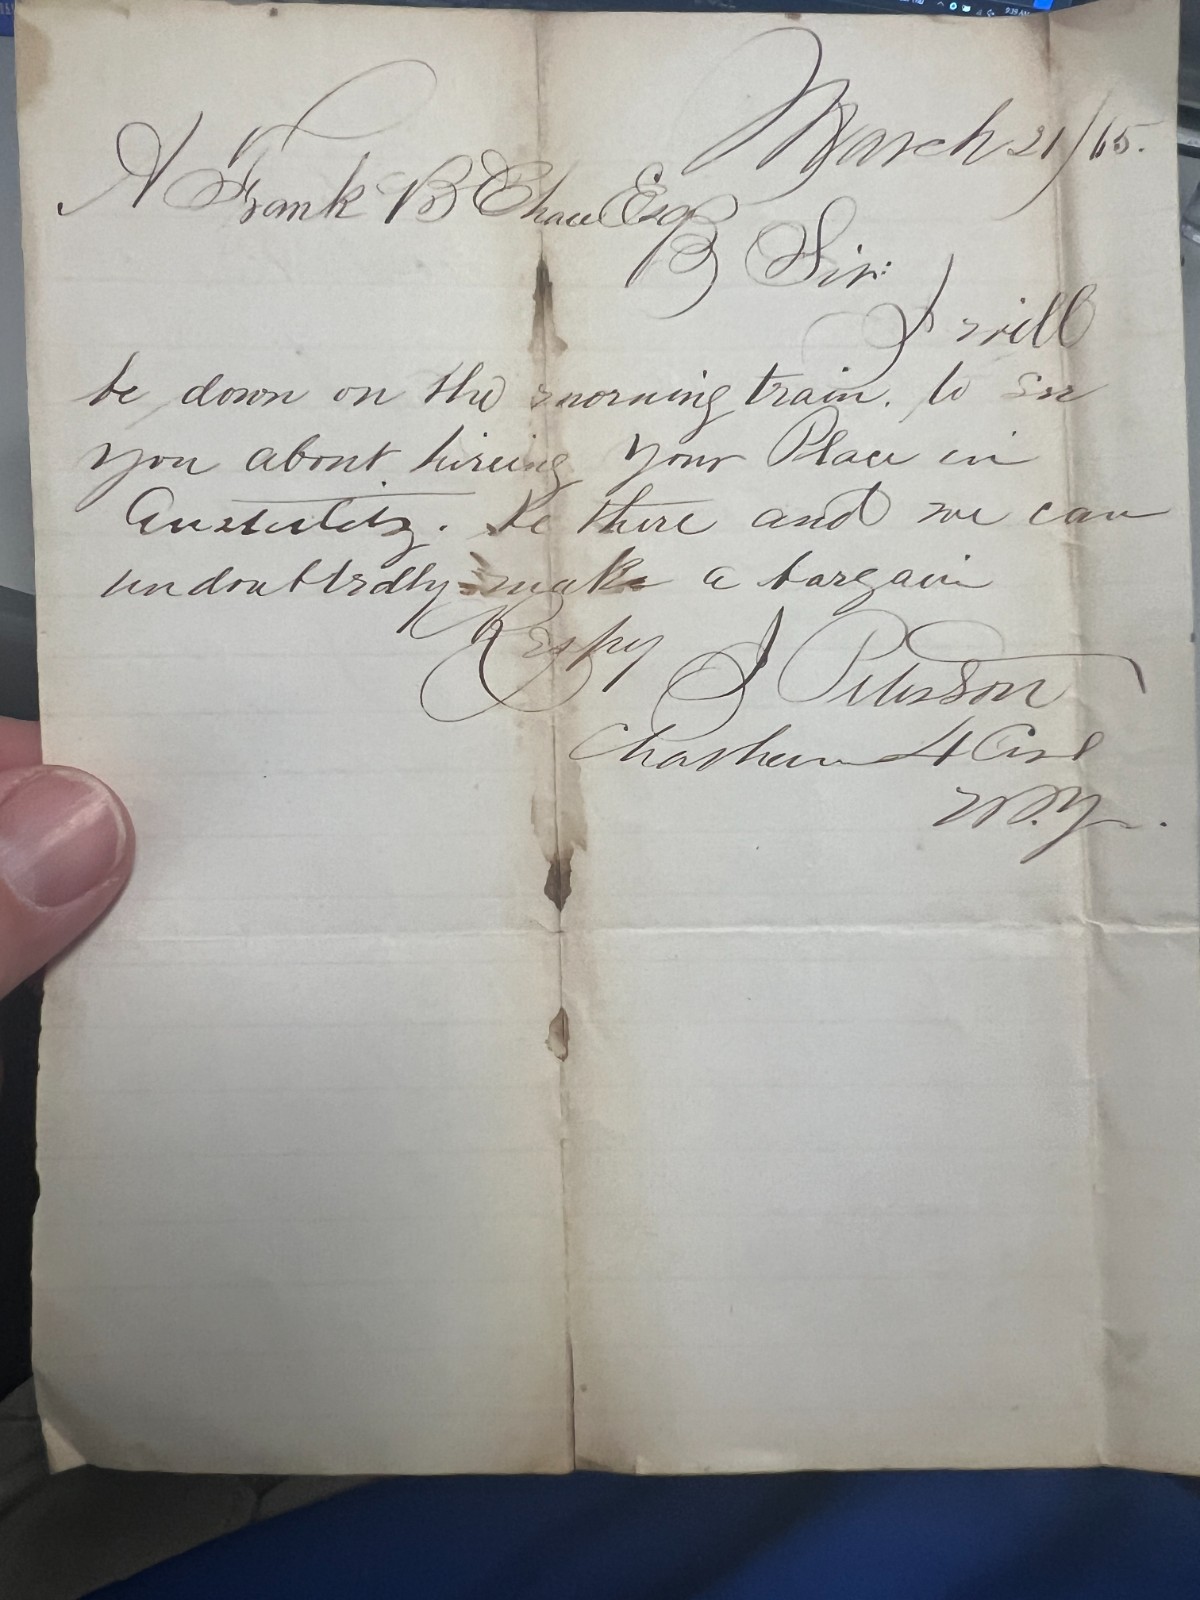 March 21/65.
A Frank B Chace Esq
B Sir:
I will
be down on the morning train. to see
you about hireing your Place in
Austerlitz. Be there and we can
undoubtedly make a bargain
Respy
J Peterson
Chatham 4 Cor
N.Y.